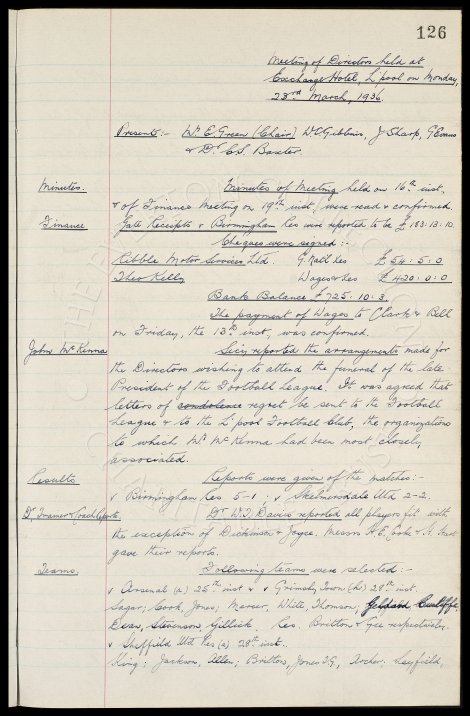 126
Meeting of Directors held at
Exchange Hotel, L'pool on Monday,
23rd March, 1936.
Present:- W. E. Green (Chair), W. C. Gibbins, J Sharp, G Evans
& Dr C. S. Baxter.
Minutes. Minutes of Meeting held on 16th inst.
& of Finance Meeting on 19th inst. were read & confirmed.
Finance Gate Receipts v Birmingham Res were reported to be £183:13:10.
Cheques were signed :-
Ribble Motor Services Ltd. G.nall &es £54:5:0
Theo Kelly Wages &es £420:0:0
Bank Balance £725:10:3.
The payment of Wages to Clark & Bell
on Friday, the 13th inst, was confirmed.
John McKenna Secy reported the arrangements made for
the Directors wishing to attend the funeral of the late
President of the Football League. It was agreed that
letters of condolence regret be sent to the Football
League & to the L'pool Football Club, the organizations
to which Mr McKenna had been most closely
associated.
Results Reports were given of the matches:-
v Birmingham Res 5-1 : v Skelmersdale Utd 2-2.
Dr Trainer & Coach Reports Dr W. J. Davies reported all players fit with
the exception of Dickinson & Joyce. Messrs H. E. Cooke &
gave their reports.
Teams. Following teams were selected:-
v Arsenal (a) 25th inst & v Grimsby Town (h) 28th inst.
Sagar; Cook, Jones; Mercer, White, Thomson; Geldard Cunliffe
Dean, Stevenson, Gillick. Res. Britton & Gee respectively.
v Sheffield Utd Res (a) 28th inst.
King; Jackson, Allen; Britton, Jones T.G., Archer; Leyfield,